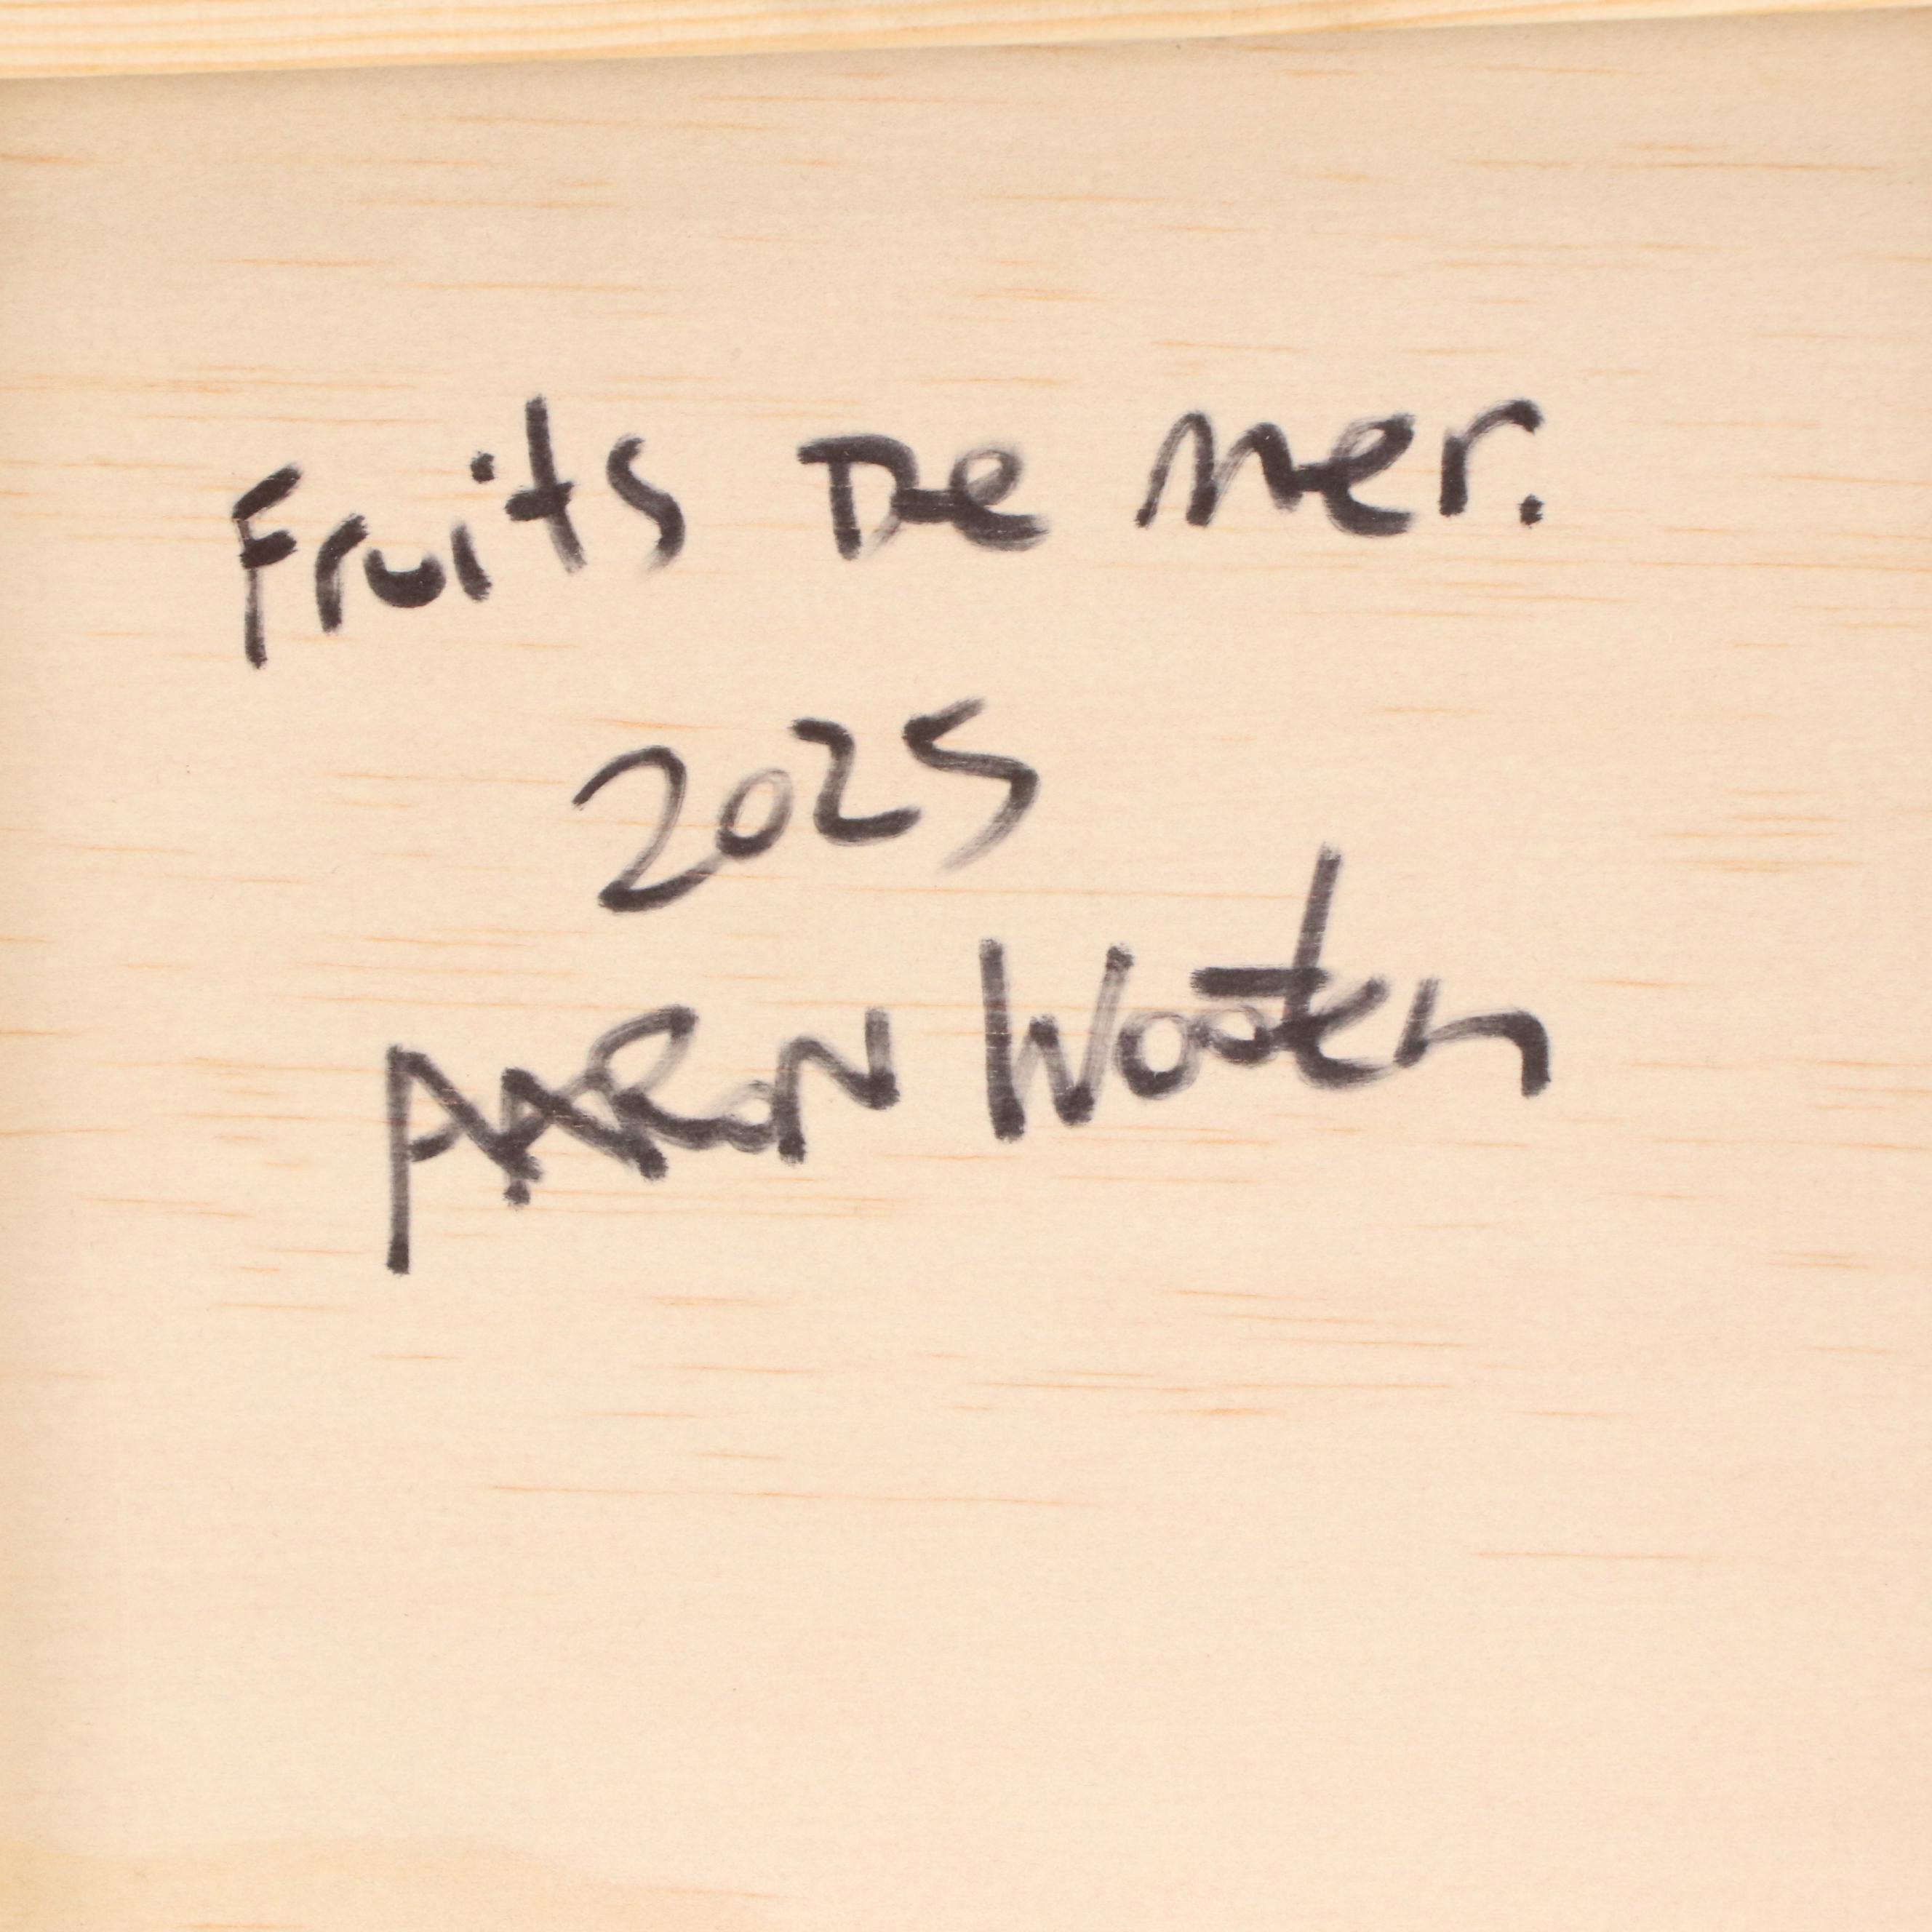 Fruits De mer.
2025
AARON Wooten